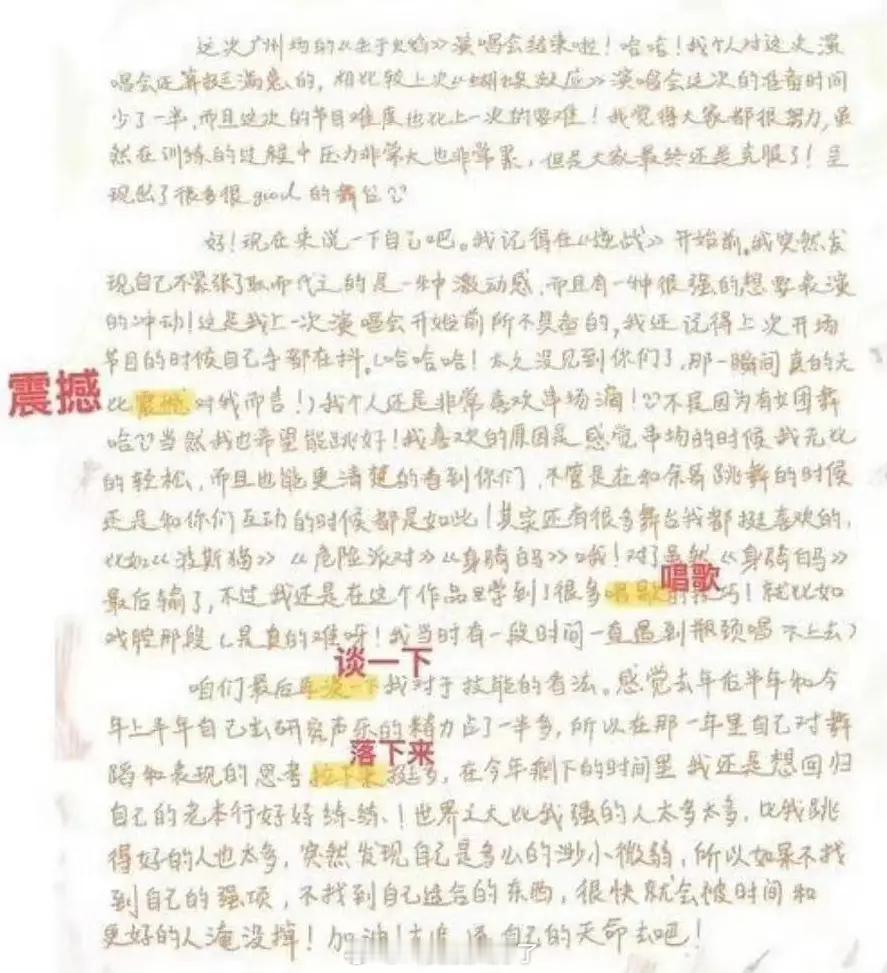 这次广州场的《生于火焰》演唱会结束啦！哈哈！我个人对这次演
唱会还算挺满意的，相比较上次《蝴蝶效应》演唱会这次的准备时间
少了一半，而且这次的节目难度也比上一次的要难！我觉得大家都很努力，虽
然在训练的过程中压力非常大也非常累，但是大家最终还是克服了！呈
现出了很多很good的舞台
好！现在来说一下自己吧。我记得在《迎战》开始前，我突然发
现自己不紧张了取而代之的是一种激动感，而且有一种很强的想要表演
的冲动！这是我上一次演唱会开始前所不具备的，我还记得上次开场
节目的时候自己手都在抖。（哈哈哈！太久没见到你们了，那一瞬间真的无
震撼
比震撼对我而言！）我个人还是非常喜欢串场滴！不是因为有女团舞
哈当然我也希望能跳好！我喜欢的原因是感觉串场的时候我无比
的轻松，而且也能更清楚的看到你们，不管是在和余舞跳舞的时候
还是和你们互动的时候都是如此！其实还有很多舞台我都挺喜欢的，
比如《波斯猫》《危险派对》《身骑白马》哦！对了虽然《身骑白马》
唱歌
最后输了，不过我还是在这个作品里学到了很多唱歌的技巧！就比如
戏腔那段（是真的难呀！我当时有一段时间一直遇到瓶颈唱不上去）
谈一下
咱们最后再谈一下我对于技能的看法。感觉去年后半年和今
年上半年自己去研究声乐的精力占了一半多，所以在那一年里自己对舞
落下来
蹈和表现的思考拉下来挺多，在今年剩下的时间里我还是想回归
自己的老本行好好练练！世界之大比我强的人太多太多，比我跳
得好的人也太多，突然发现自己是多么的渺小微弱，所以如果不找
到自己的强项，不找到自己适合的东西，很快就会被时间和
更好的人淹没掉！加油！自己的天命去吧！